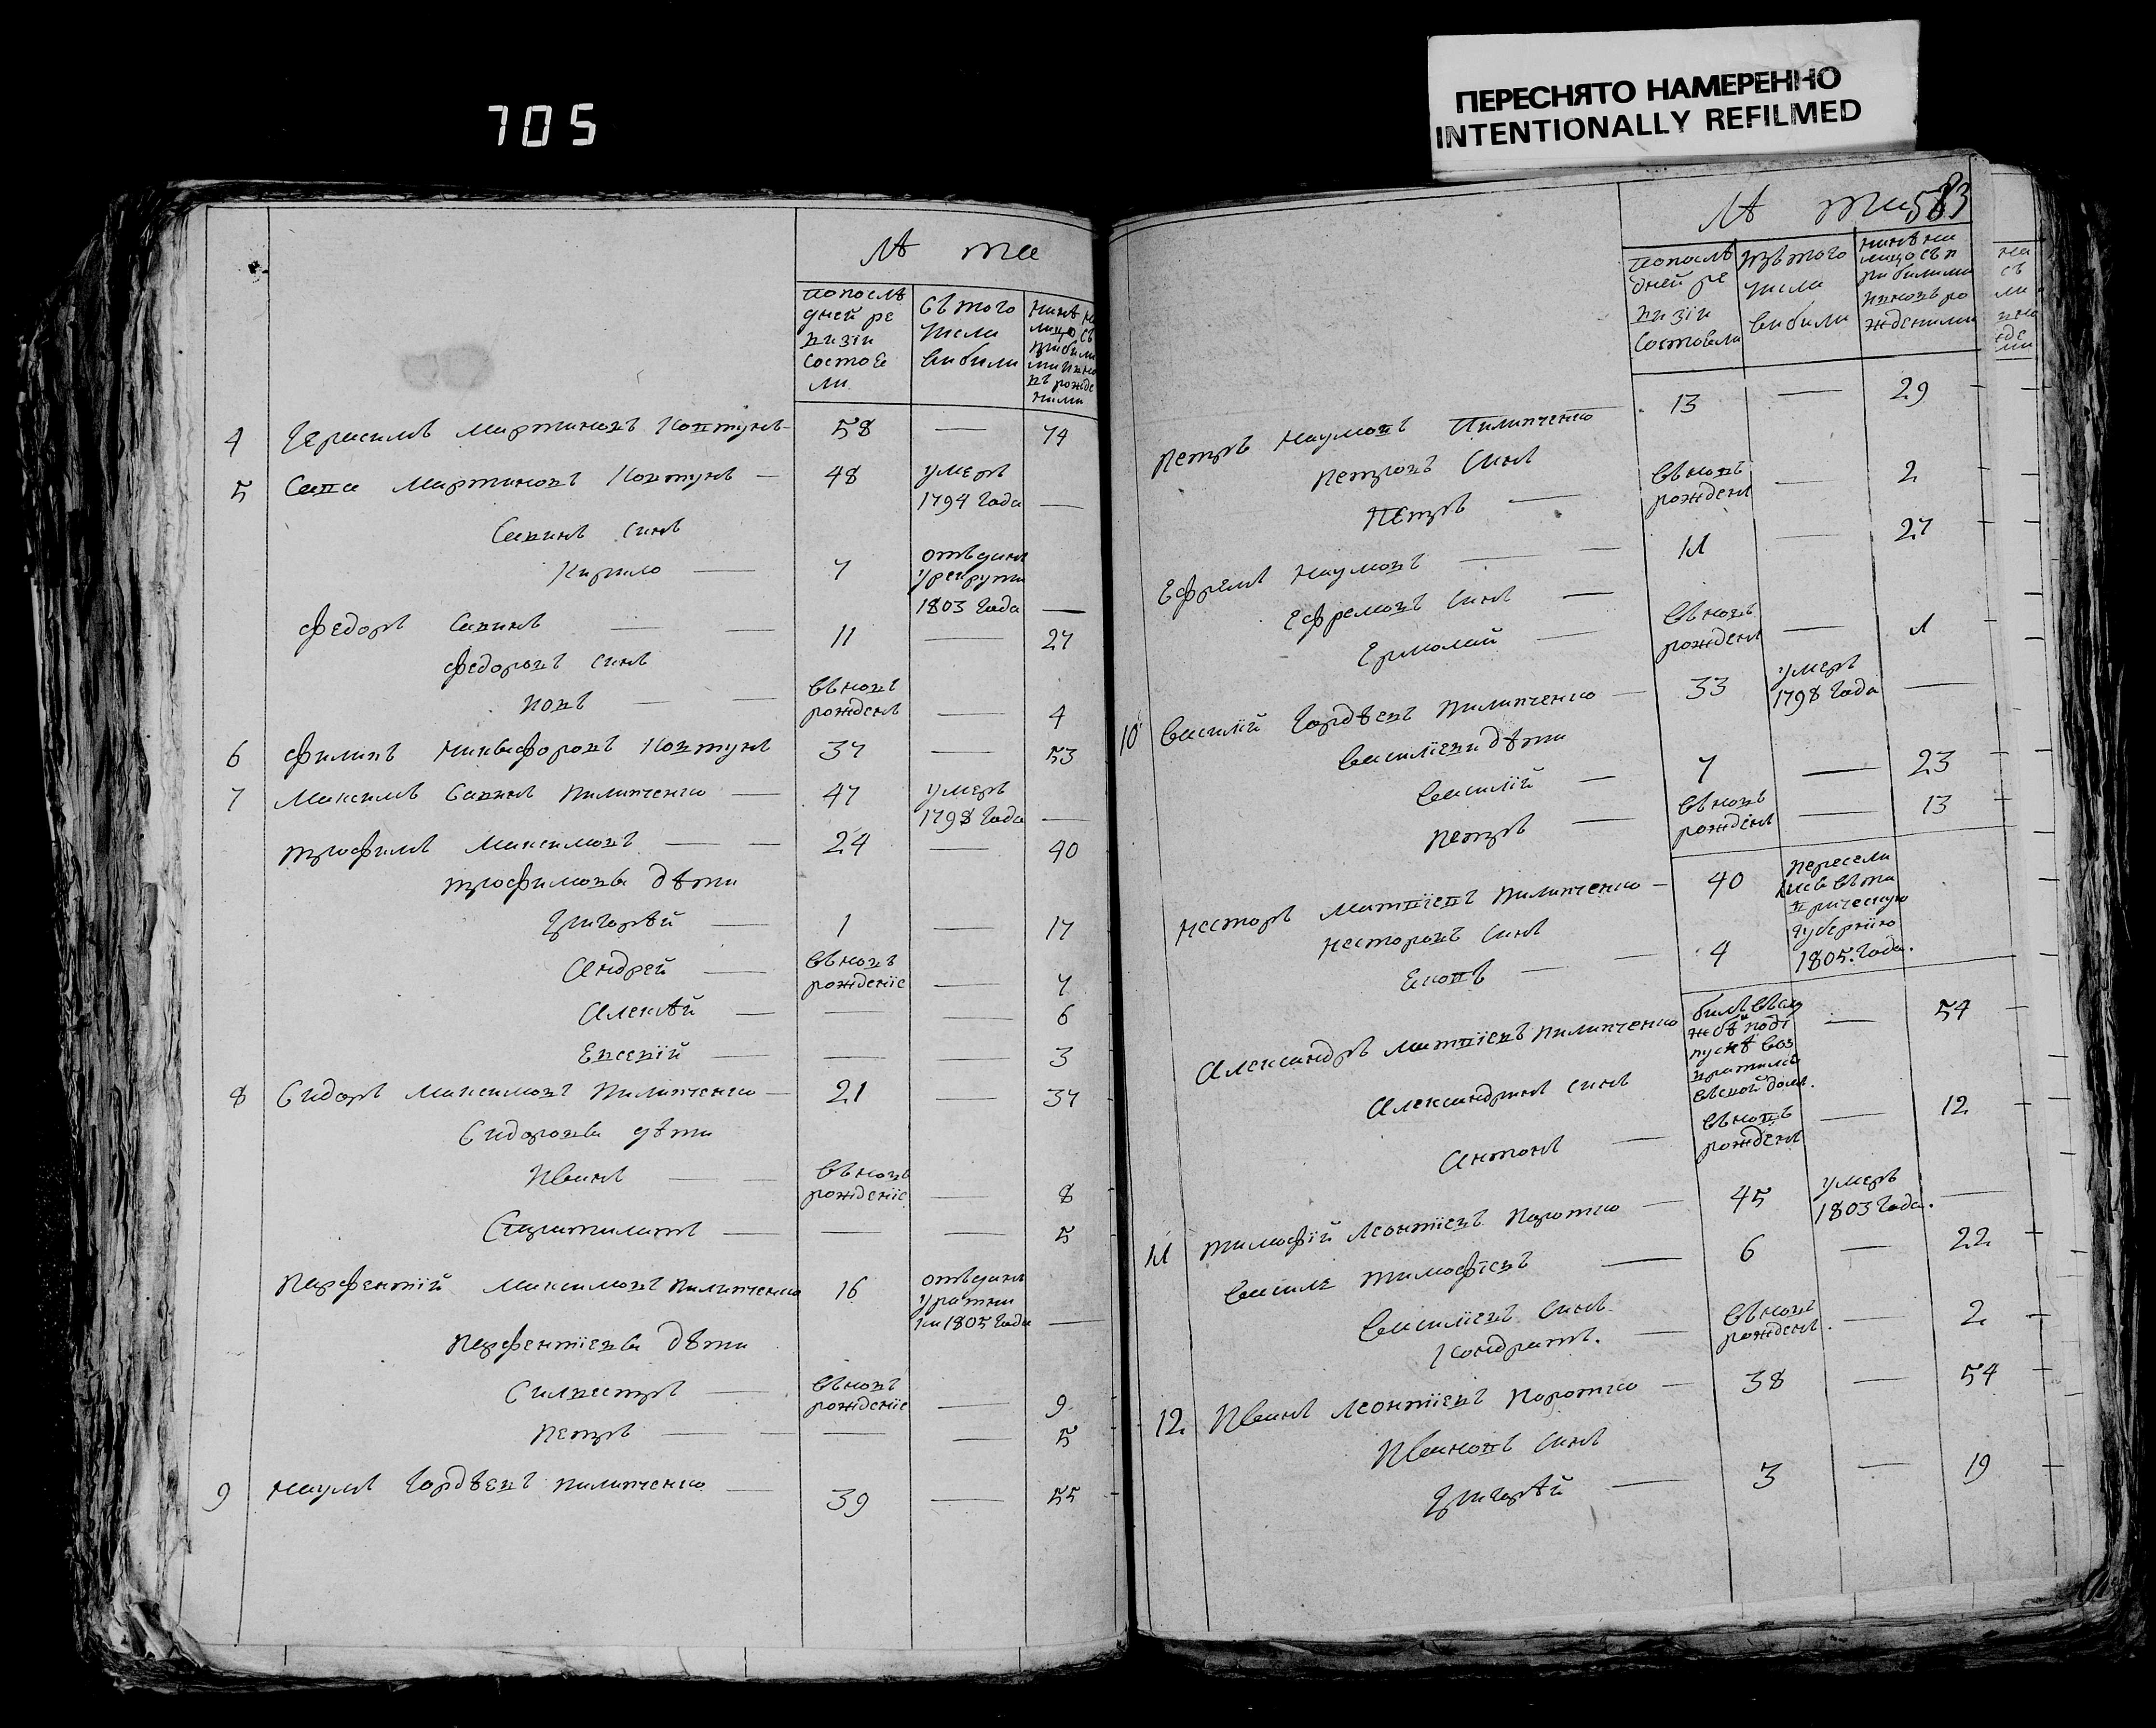 705
ПЕРЕСНЯТО НАМЕРЕННО
INTENTIONALLY REFILMED
Лѣ та
по послѣ
дней ре
визіи
состое
ли
съ того
числа
вибили
4 Герасимъ Мартиновъ Ковтунъ 58 — 74
5 Сава Мартиновъ Ковтунъ — 48 умеръ
1794 Года —
Савинъ синъ
Кирило — 7 отъданъ
у рекруты
1803 Года —
Федоръ Савинъ — — 11 — 27
Федоровъ синъ
Иовъ — — въновъ
рожденъ — 4
6 Филипъ Никифоровъ Ковтунъ 37 — 53
7 Максимъ Савинъ Пилипченко — 47 умеръ
1798 Года —
Трофимъ Максимовъ — — 24 — 40
Трофимовы дѣти
Григорѣй — 1 — 17
Андрей — въновъ
рожденіе — 7
Алексѣй — — — 6
Евсевій — — — 3
8 Сидоръ Максимовъ Пилипченко — 21 — 37
Сидоровы дѣти
Иванъ — — въновъ
рожденіе — 8
Стратилатъ — — — 5
Парфентій Максимовъ Пилипченко 16 отъданъ
у ратни
ки 1805 Года —
Парфентіевы дѣти
Силвестръ — въновъ
рожденіе — 9
Петръ — — — 5
9 Наумъ Гордѣевъ Пилипченко — 39 — 55
Лѣ та 583
по послѣ
дней ре
визіи
состояли
изъ того
числа
вибили
Петръ Наумовъ Пилипченко 13 — 29
Петровъ синъ
Петръ — въновъ
рожденъ — 2
Ефремъ Наумовъ — — 11 — 27
Ефремовъ синъ —
Ермолай — въновъ
рожденъ — 1
10 Василій Гордѣевъ Пилипченко — 33 умеръ
1798 Года —
Василіеви дѣти
Василій — 7 — 23
Петръ — въновъ
рожденъ — 13
Несторъ Матвіевъ Пилипченко — 40 пересели
лись въ та
врическую
губернію
1805. Года.
Несторовъ синъ
Яковъ — — 4
Александръ Матвіевъ Пилипченко билъ въ слу
жбѣ и по от
пускѣ воз
вратился
въ свой домъ. — 54
Александринъ синъ
Антонъ — въновъ
рожденъ — 12
11 Тимофій Леонтіевъ Коротко — 45 умеръ
1803 Года. —
Василь Тимофіевъ — 6 — 22
Василіевъ синъ
Кондратъ. — въновъ
рожденъ. — 2
12. Иванъ Леонтіевъ Коротко — 38 — 54
Ивановъ синъ
Григорѣй — 3 — 19